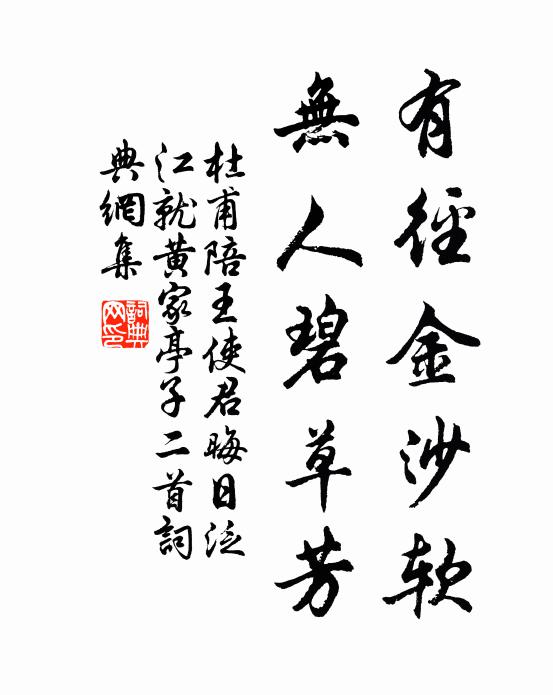 有徑金沙軟
無人碧草芳
杜甫陪王使君晦日泛
江就黃家亭子二首詞
典網集
詞典
网印